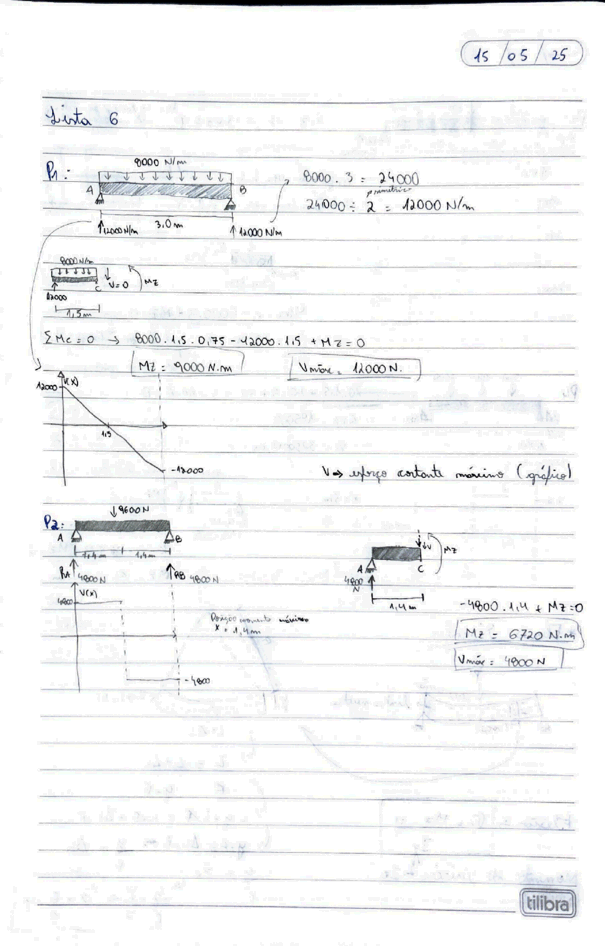 15 / 05 / 25
Lista 6
P1:
8000 N/m
A
B
3,0 m
12000 N/m
12000 N/m
8000 . 3 = 24000
24000 ÷ 2 = 12000 N/m
8000 N/m
V=0
Mz
C
12000
1,5 m
ΣMc = 0 → 8000 . 1,5 . 0,75 - 12000 . 1,5 + Mz = 0
Mz = 9000 N.m
Vmáx = 12000 N.
12000
V(x)
1,5
-12000
V => esforço cortante máximo (gráfico)
P2:
9600 N
A
B
1,4 m
1,4 m
RA 4800 N
RB 4800 N
V(x)
4800
-4800
Posição momento máximo
x = 1,4 m
V
Mz
A
C
4800
N
1,4 m
-4800 . 1,4 + Mz = 0
Mz = 6720 N.m
Vmáx = 4800 N
tilibra